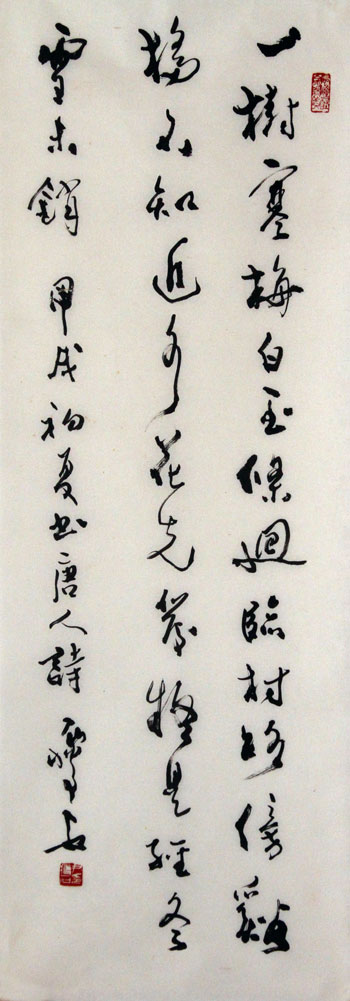 一樹寒梅白玉條迴臨村路傍谿
橋不知近水花先發疑是經冬
雪未銷 甲戌初夏書唐人詩